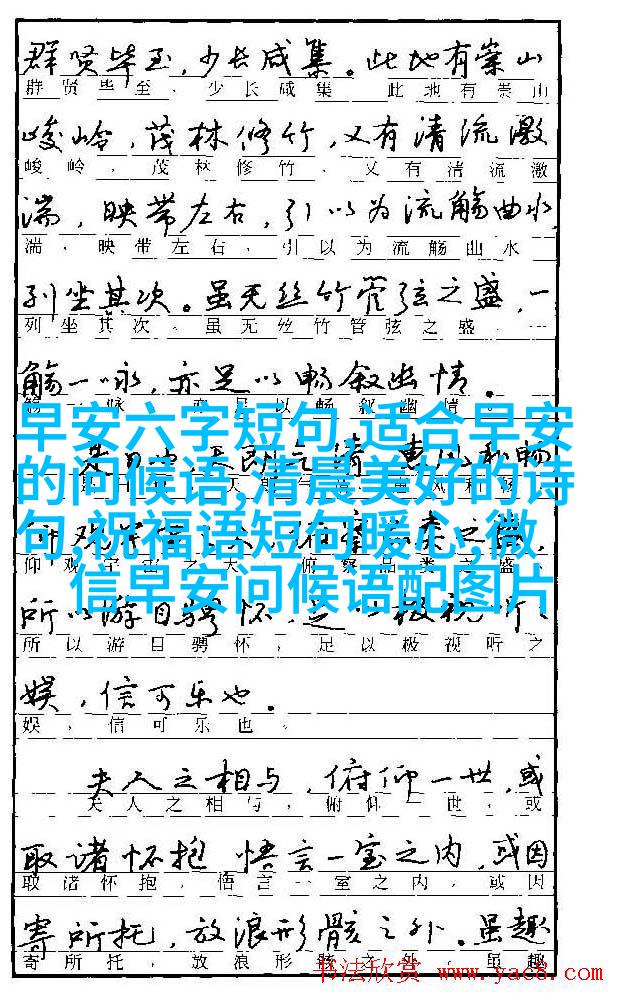 群贤毕至，少长咸集。此地有崇山
群贤毕至，少长咸集　此地有崇山
峻岭，茂林修竹，又有清流激
峻岭，茂林修竹，又有清流激
湍，映带左右，引以为流觞曲水，
湍，映带左右，引以为流觞曲水
列坐其次。虽无丝竹管弦之盛，一
列坐其次。虽无丝竹管弦之盛，一
觞一咏，亦足以畅叙幽情。
早安六字短句,适合早安
的问候语,清晨美好的诗
句,祝福语短句暖心,微
信早安问候语配图片
仰观宇宙之大，俯察品类之盛，
所以游目骋怀，足以极视听之
所以游目骋怀，足以极视听之
娱，信可乐也。
娱，信可乐也。
夫人之相与，俯仰一世，或
夫人之相与，俯仰一世，或
取诸怀抱 悟言一室之内，或因
取诸怀抱，悟言一室之内，或因
寄所托，放浪形骸之外。虽趣
寄所托，放浪形骸之外。虽趣
书法欣赏 www.yac8.com